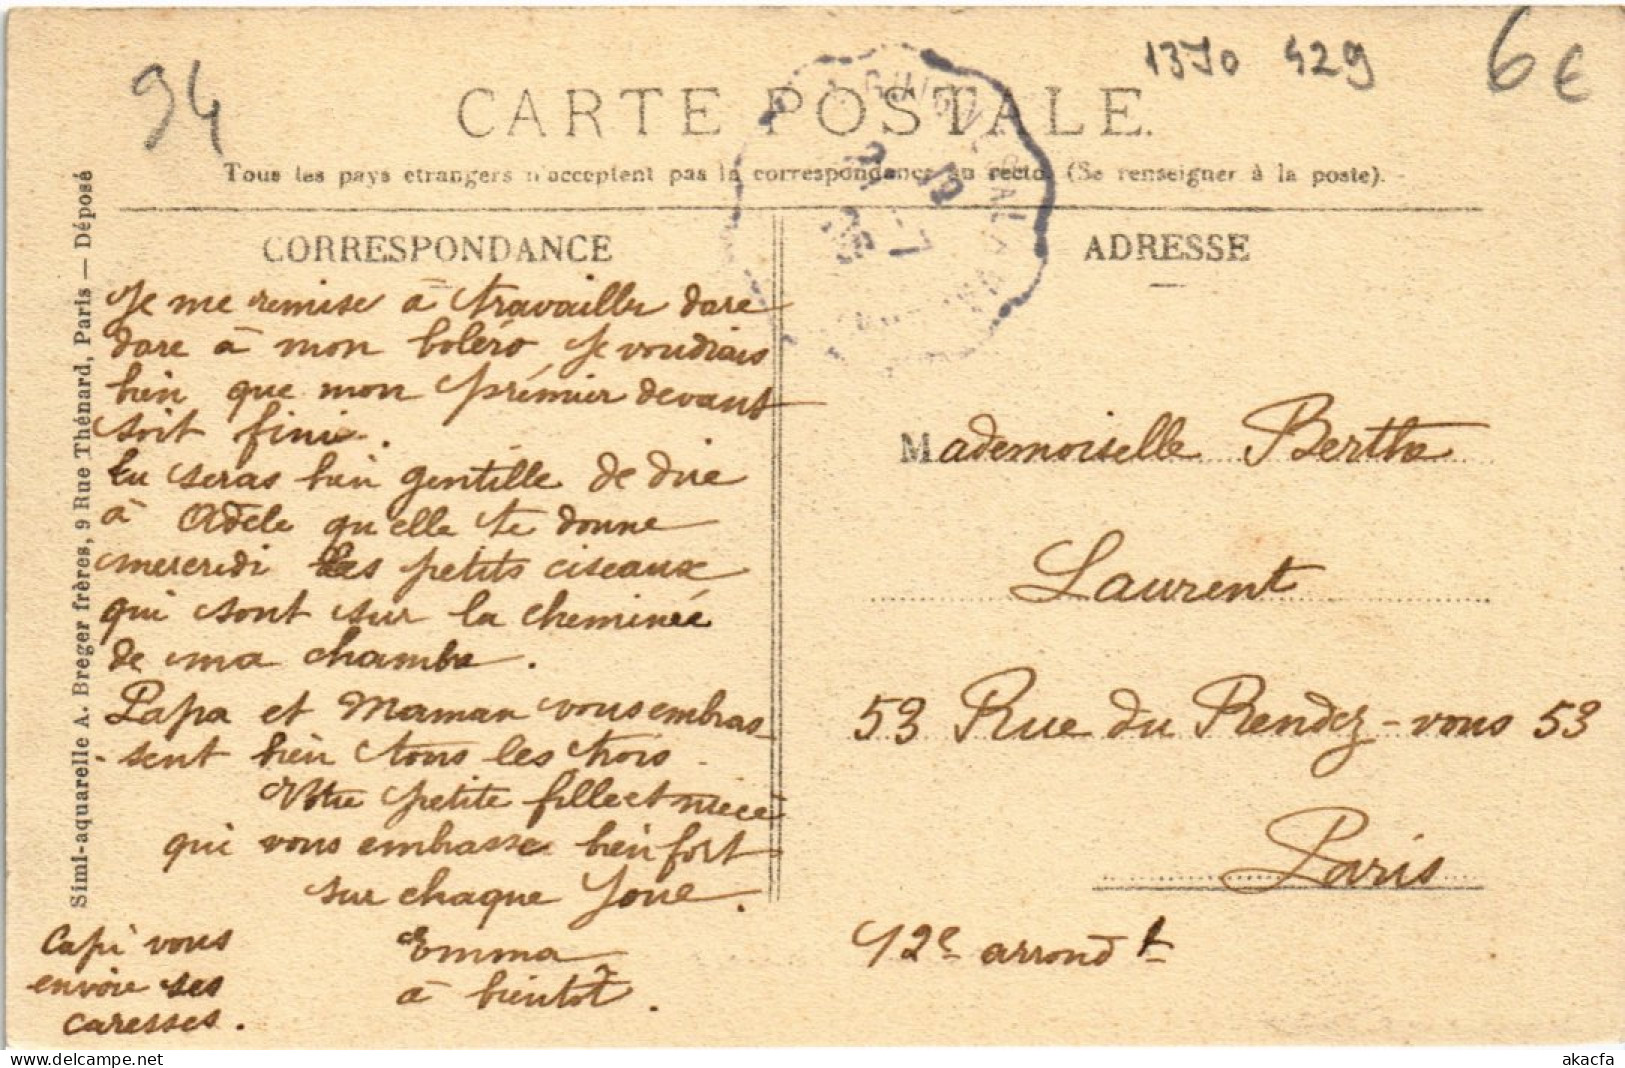 94
1370 429
6 €
CARTE POSTALE
Tous les pays etrangers n'acceptent pas la correspondance au recto. (Se renseigner à la poste).
CORRESPONDANCE
Je me remise à travailler dare
dare à mon boléro je voudrais
bien que mon prémier devant
soit fini.
tu seras bien gentille de dire
à Adèle qu'elle te donne
mercredi les petits ciseaux
qui sont sur la cheminée
de ma chambre.
Papa et Maman vous embras
-sent bien tous les trois.
Votre petite fille et nièce
qui vous embrasse bien fort
sur chaque joue.
Emma
à bientôt.
Capi vous
envoie ses
caresses.
ADRESSE
Mademoiselle Berthe
Laurent
53 Rue du Rendez-vous 53
Paris
12e arrondt
Simi-aquarelle A. Breger frères, 9 Rue Thénard, Paris — Déposé
akacfa